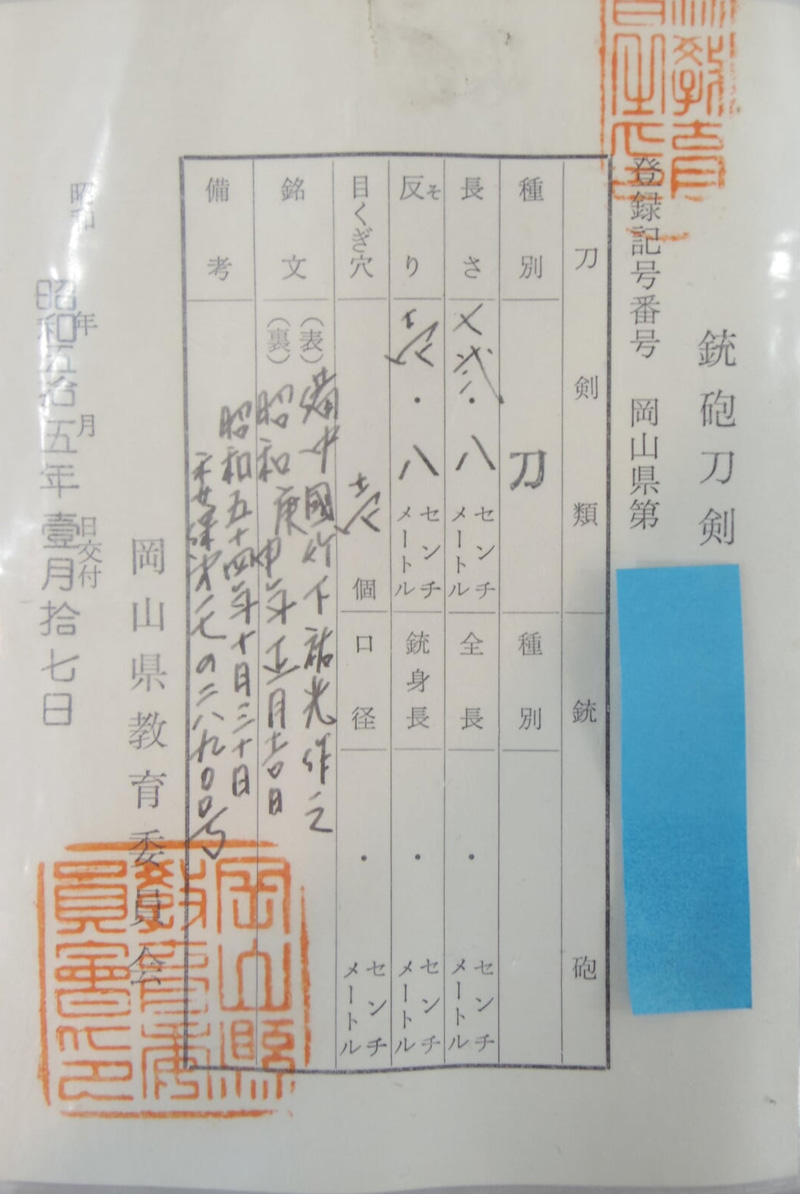 銃砲刀剣
登録記号番号 岡山県第
刀剣類
銃砲
種別
刀
種別
長さ
七弐・八 センチメートル
全長
・ センチメートル
反り
そ
壱・八 センチメートル
銃身長
・ センチメートル
目くぎ穴
壱 個
口径
・ センチメートル
銘文
(表) 備中國竹下祐光作之
(裏) 昭和庚申年正月吉日
備考
昭和五十四年十月三十日
昭和 年 月 日交付
昭和五拾五年壹月拾七日
岡山県教育委員会
岡山縣教育委員會之印